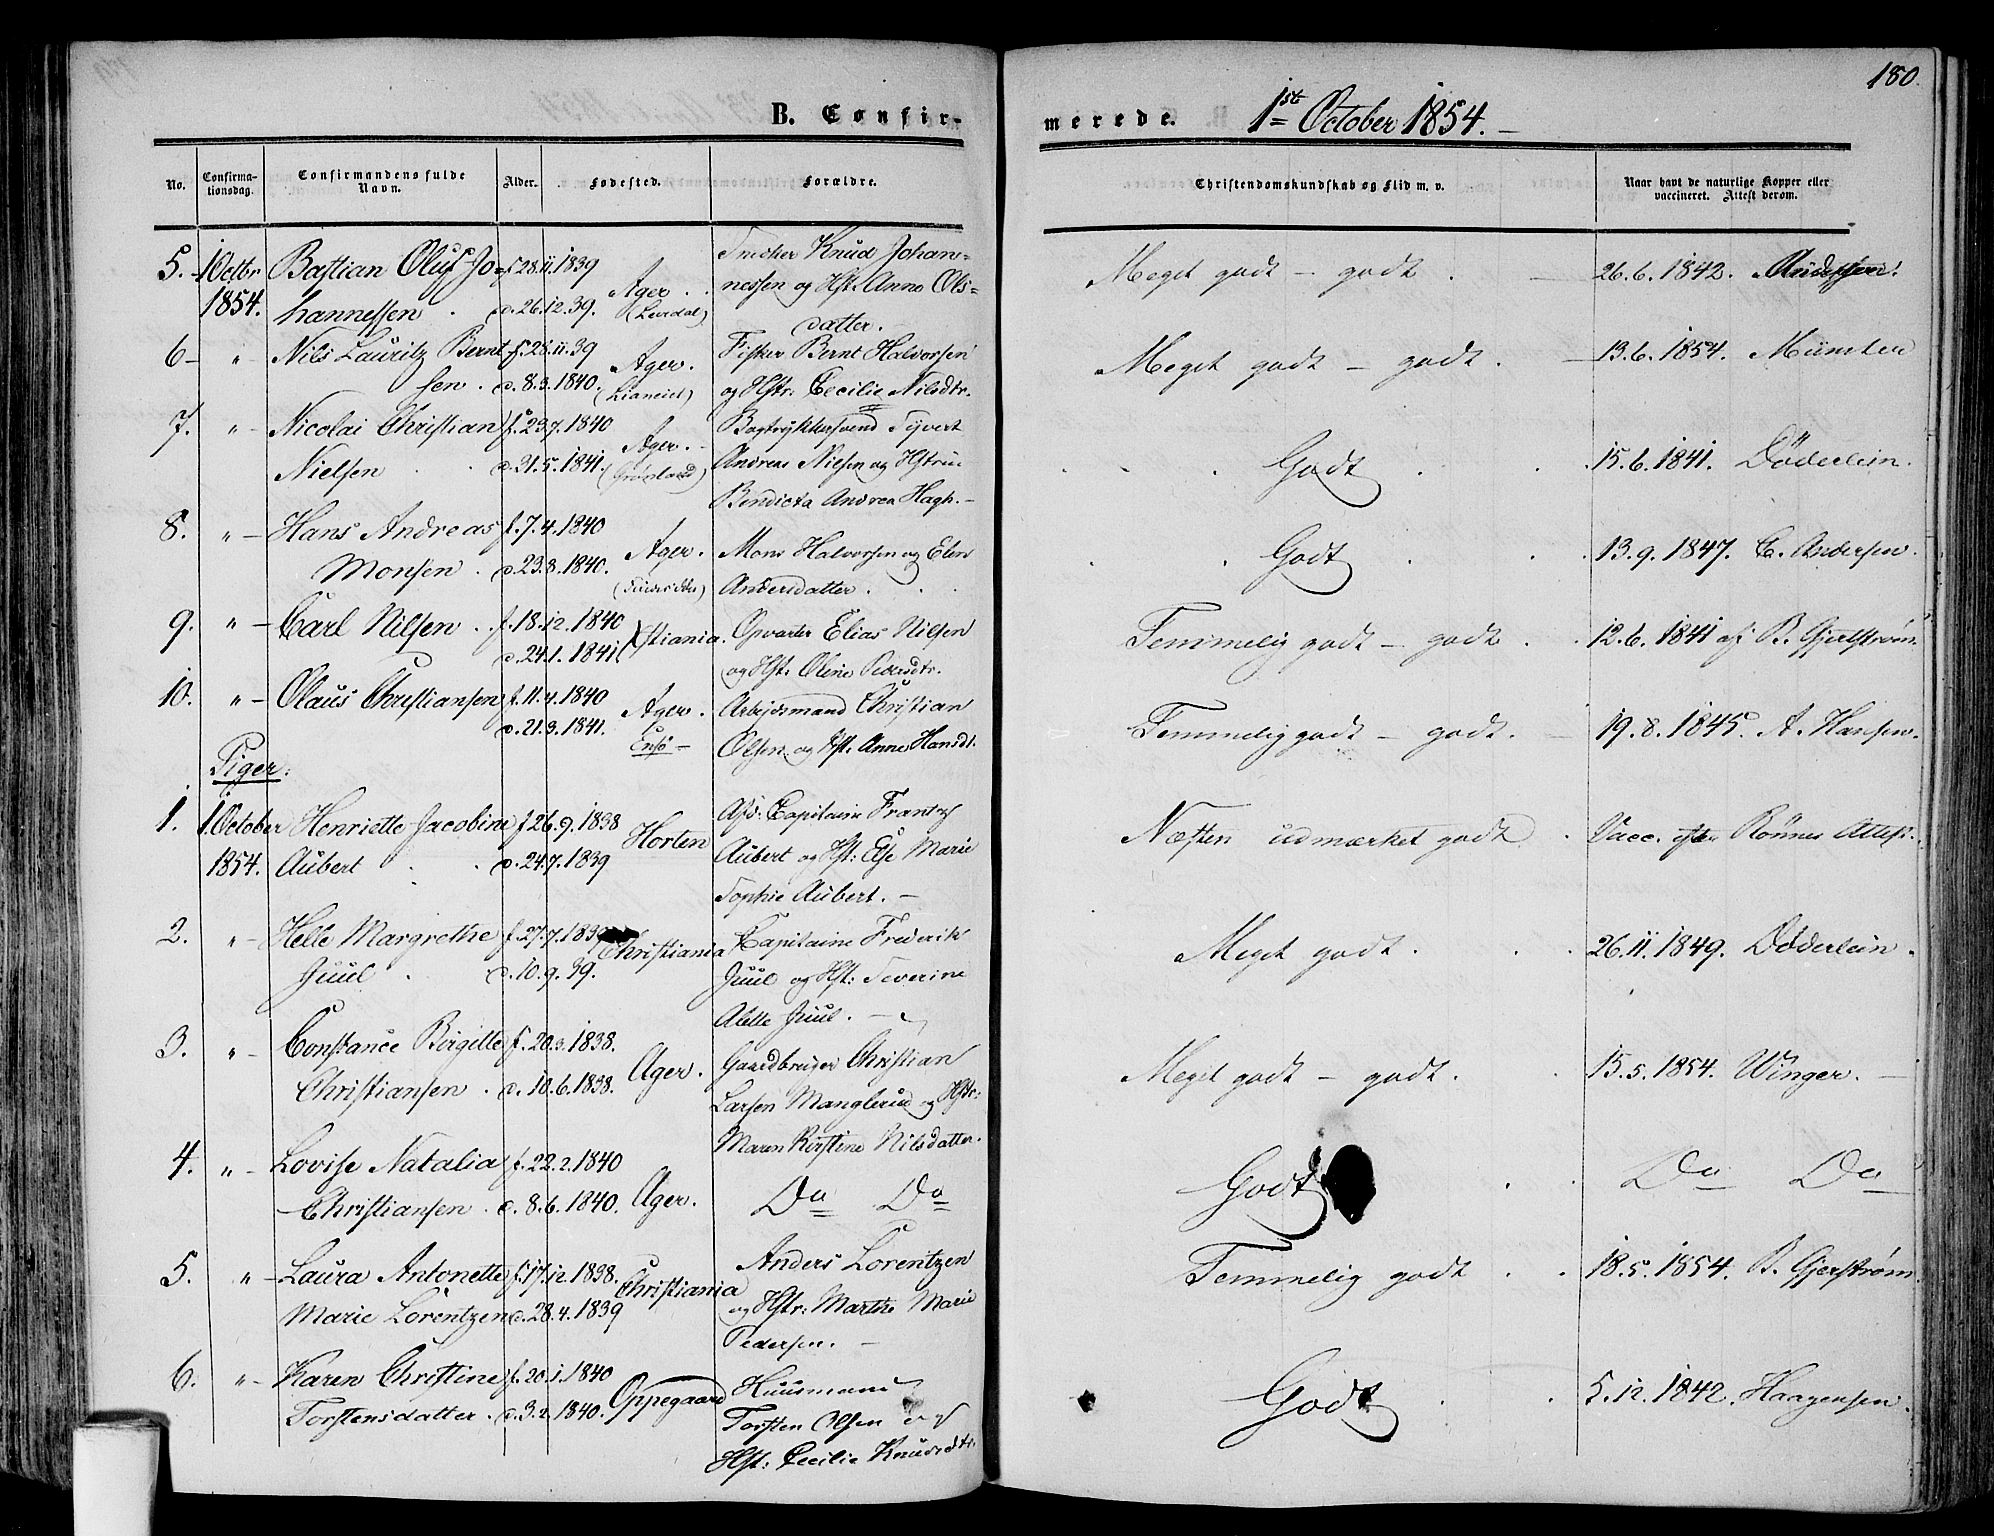 180.
B. Confirmerede. 1ste October 1854.
No. Confirmationsdag. Confirmandens fulde Navn. Alder. Fødested. Forældre. Christendomskundskab og Flid m. v. Naar havt de naturlige Kopper eller vaccineret. Attest derom.
5. 1 Octbr Bastian Oluf Jo- f. 28.11.1839 Ager. Snedker Knud Johan- Meget godt – godt. 26.6.1842.
1854. hannessen d. 26.12.39. nessen og Hst. Anne Ols-
datter.
6 – " – Nils Lauritz Bernt- f. 28.11.39 Ager. Fisker Bernt Halvorsen Meget godt – godt. 13.6.1854. Münster
sen. d. 8.3.1840. (Lianeiet) og Hstr: Cecilie Nilsdtr.
7. " – Nicolai Christian f. 23.7.1840 Ager. Bogtrykkersvend Syvert Godt 15.6.1841. Döderlein.
Nielsen d. 21.5.1841. (Grønland) Andreas Nielsen og Hstru
Bendicta Andrea Hagh. –
8. " – Hans Andreas f. 7.4.1840 Ager. Mons Halvorsen og Elen Godt 13.9.1847. C. Andersen.
Monsen. d. 23.8.1840. Andersdatter.
9. " – Carl Nilsen. f. 18.12.1840 Xstiania. Opvarter Elias Nilsen Temmelig godt – godt. 12.6.1841 af B. Gjerlstrøm.
d. 24.1.1841. og Hst: Oline Pedersdtr.
10. " – Olaus Christiansen f. 11.4.1840 Ager. Arbejdsmand Christian Temmelig godt – godt. 19.8.1845. A. Hansen.
d. 21.3.1841. Ensø – Olsen og Hst. Anne Hansdt.
Piger:
1. 1 October Henriette Jacobine f. 26.9.1838 Horten Afd: Capitaine Frantz Næsten udmærket godt. Vacc. efter Rönnes Attest.
1854. Aubert d. 24.7.1839 Aubert og Hst: Else Marie
Sophie Aubert. –
2. " – Helle Margrethe f. 27.7.1839 Christiania Capitaine Frederik Meget godt. 26.11.1849. Døderlein.
Juul d. 10.9.39. Juul og Hst: Severine
Alette Juul. –
3. " – Constance Birgitte f. 20.3.1838. Ager. Gaardbruger Christian Meget godt – godt. 15.5.1854. Winger. –
Christiansen. d. 10.6.1838. Larsen Manglerud og Hstr:
Maren Kirstine Nilsdatter.
4. " – Lovise Natalia f. 22.2.1840 Ager. Do Do Godt Do Do
Christiansen. d. 8.6.1840.
5. " – Laura Antonette f. 17.12.1838. Christiania Anders Lorentzen Temmelig godt. 18.5.1854. B. Gjerstrøm.
Marie Lorentzen d. 28.4.1839 og Hstr: Marthe Marie
Pedersen. –
6. " – Karen Christine f. 20.1.1840 Oppegaard Huusmand Godt 5.12.1842. Haagensen.
Torstensdatter. d. 3.2.1840. Torsten Olsen og
Hst: Cecilie Knudsdtr.